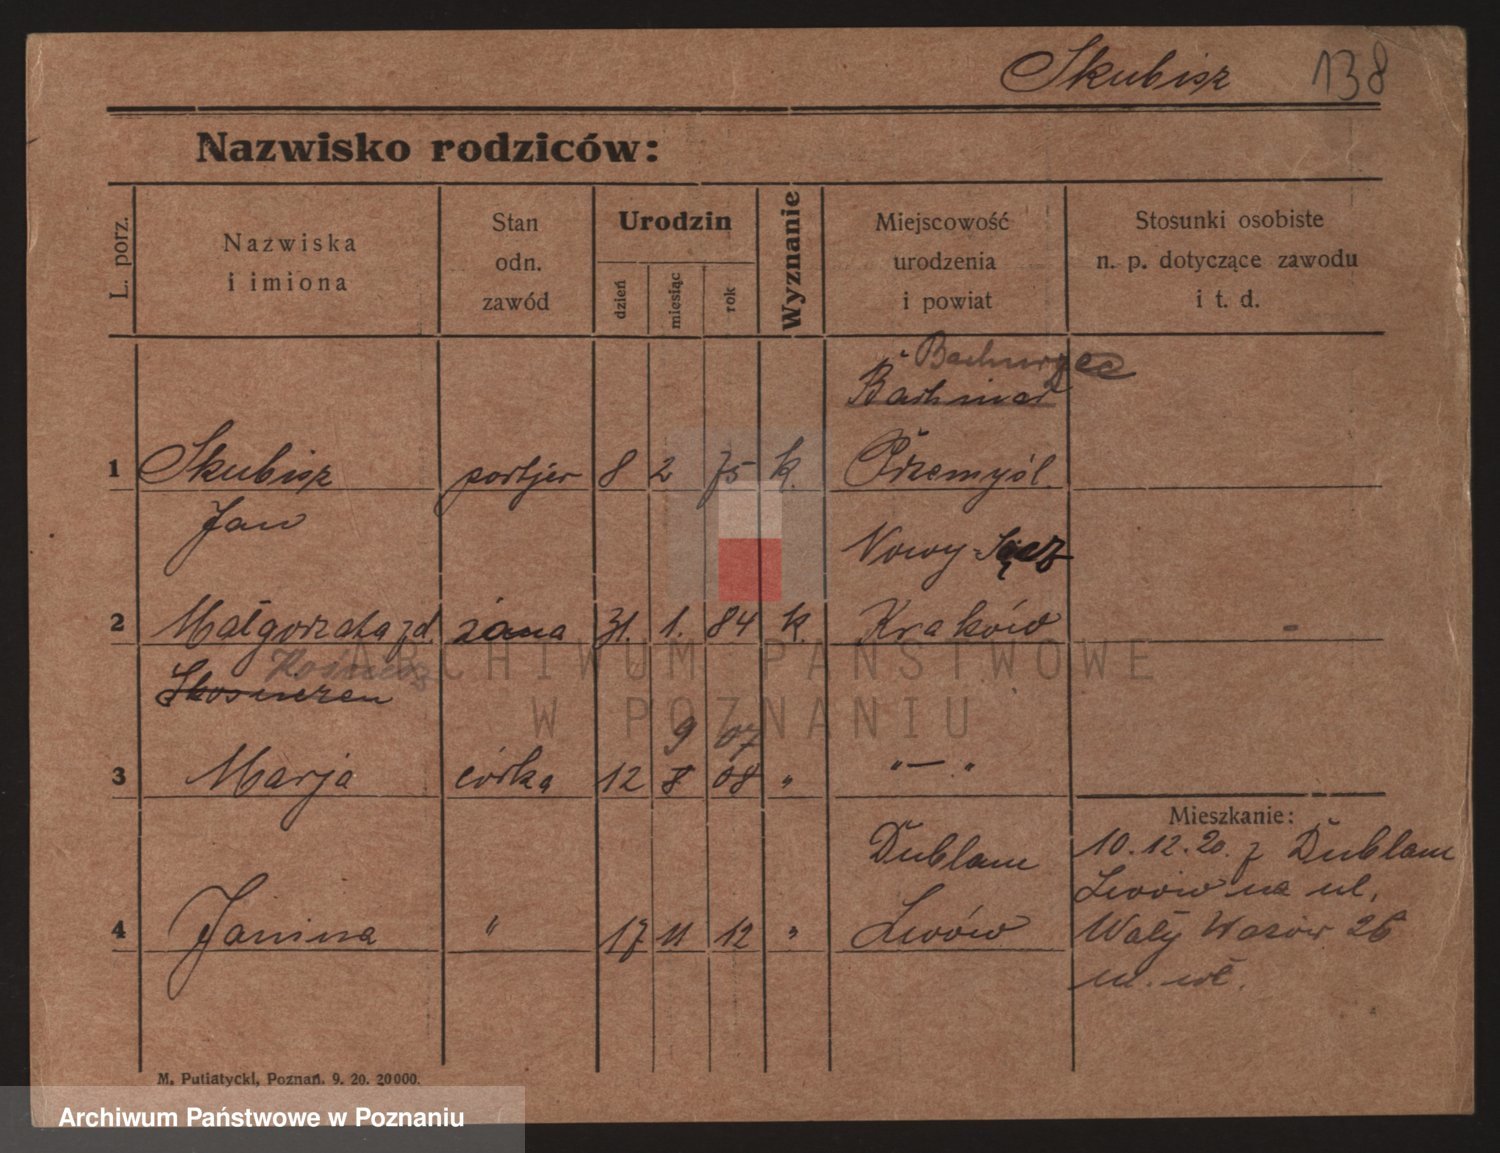 Skubisz 138
Nazwisko rodziców:
L. porz.
Nazwiska
i imiona
Stan
odn.
zawód
Urodzin
dzień
miesiąc
rok
Wyznanie
Miejscowość
urodzenia
i powiat
Stosunki osobiste
n. p. dotyczące zawodu
i t. d.
1 Skubisz portjer 8 2 75 k. Przemyśl.
Jan
Nowy-Sącz
2 Małgorzata zd. żona 31. 1. 84 k. Kraków
9 07
3 Marja córka 12 8 08 " "—"
Mieszkanie:
Dublany
10.12.20. z Dublan
Lwów na ul.
4 Janina " 17 11 12 " Lwów
Wały Wazów 26
M. Putiatycki, Poznań. 9. 20. 20000.
ARCHIWUM PAŃSTWOWE
W POZNANIU
Archiwum Państwowe w Poznaniu